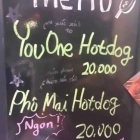 MENU
You One Hotdog
20.000
Phô Mai Hotdog
Ngon!
20.000